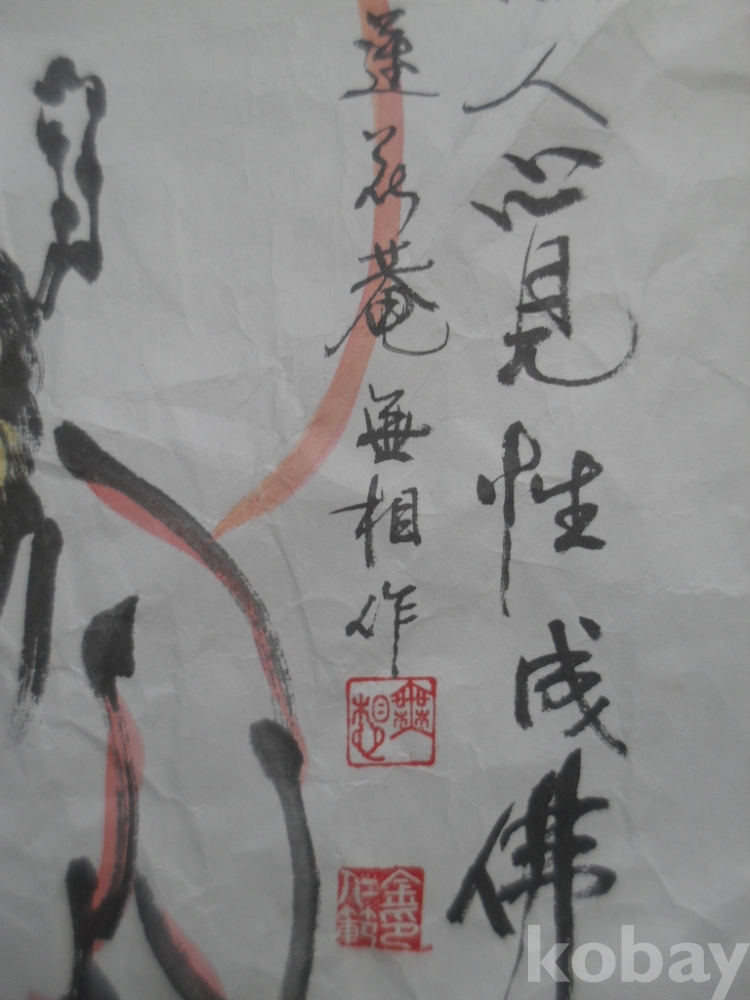 人心見性成佛
蓮花菴無相作
無想
金
印
範
kobay